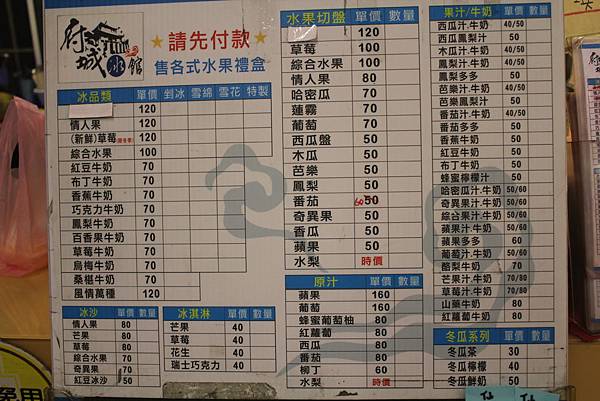 府城冰館
★請先付款★
售各式水果禮盒
冰品類 單價 剉冰 雪綿 雪花 特製
120
情人果 120
(新鮮)草莓 120
綜合水果 100
紅豆牛奶 70
布丁牛奶 70
香蕉牛奶 70
巧克力牛奶 70
鳳梨牛奶 70
百香果牛奶 70
草莓牛奶 70
烏梅牛奶 70
桑椹牛奶 70
風情萬種 120
冰沙 單價 數量
情人果 80
芒果 80
草莓 80
綜合水果 70
奇異果 70
紅豆冰沙 50
冰淇淋 單價 數量
芒果 40
草莓 40
花生 40
瑞士巧克力 40
水果切盤 單價 數量
120
草莓 100
綜合水果 100
情人果 80
哈密瓜 70
蓮霧 70
葡萄 70
西瓜盤 50
木瓜 50
芭樂 50
鳳梨 50
番茄 60 50
奇異果 50
香瓜 50
蘋果 50
水梨 時價
原汁 單價 數量
蘋果 160
葡萄 160
蜂蜜葡萄柚 80
紅蘿蔔 80
西瓜 80
番茄 80
柳丁 60
水梨 時價
果汁/牛奶 單價 數量
西瓜汁.牛奶 40/50
鳳梨汁 50
木瓜汁.牛奶 40/50
鳳梨汁.牛奶 40/50
鳳梨多多 50
芭樂汁.牛奶 40/50
芭樂鳳梨汁 50
番茄汁.牛奶 40/50
番茄多多 50
香蕉牛奶 50
紅豆牛奶 50
布丁牛奶 50
蜂蜜檸檬汁 50
哈密瓜汁.牛奶 50/60
奇異果汁.牛奶 50/60
綜合果汁.牛奶 50/60
蘋果汁.牛奶 50/60
蘋果多多 60
葡萄汁.牛奶 50/60
酪梨牛奶 70
芒果汁.牛奶 70/80
草莓汁.牛奶 70/80
山藥牛奶 80
紅蘿蔔牛奶 80
冬瓜系列 單價 數量
冬瓜茶 30
冬瓜檸檬 40
冬瓜鮮奶 50